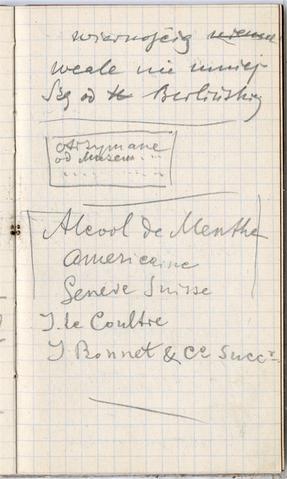 wiernością
wcale nie mniej
od Berlińskiej
otrzymane
od Muzeum ...
Alcool de Menthe
americaine
Genève Suisse
J. Le Coultre
J Bonnet & Ce Succr